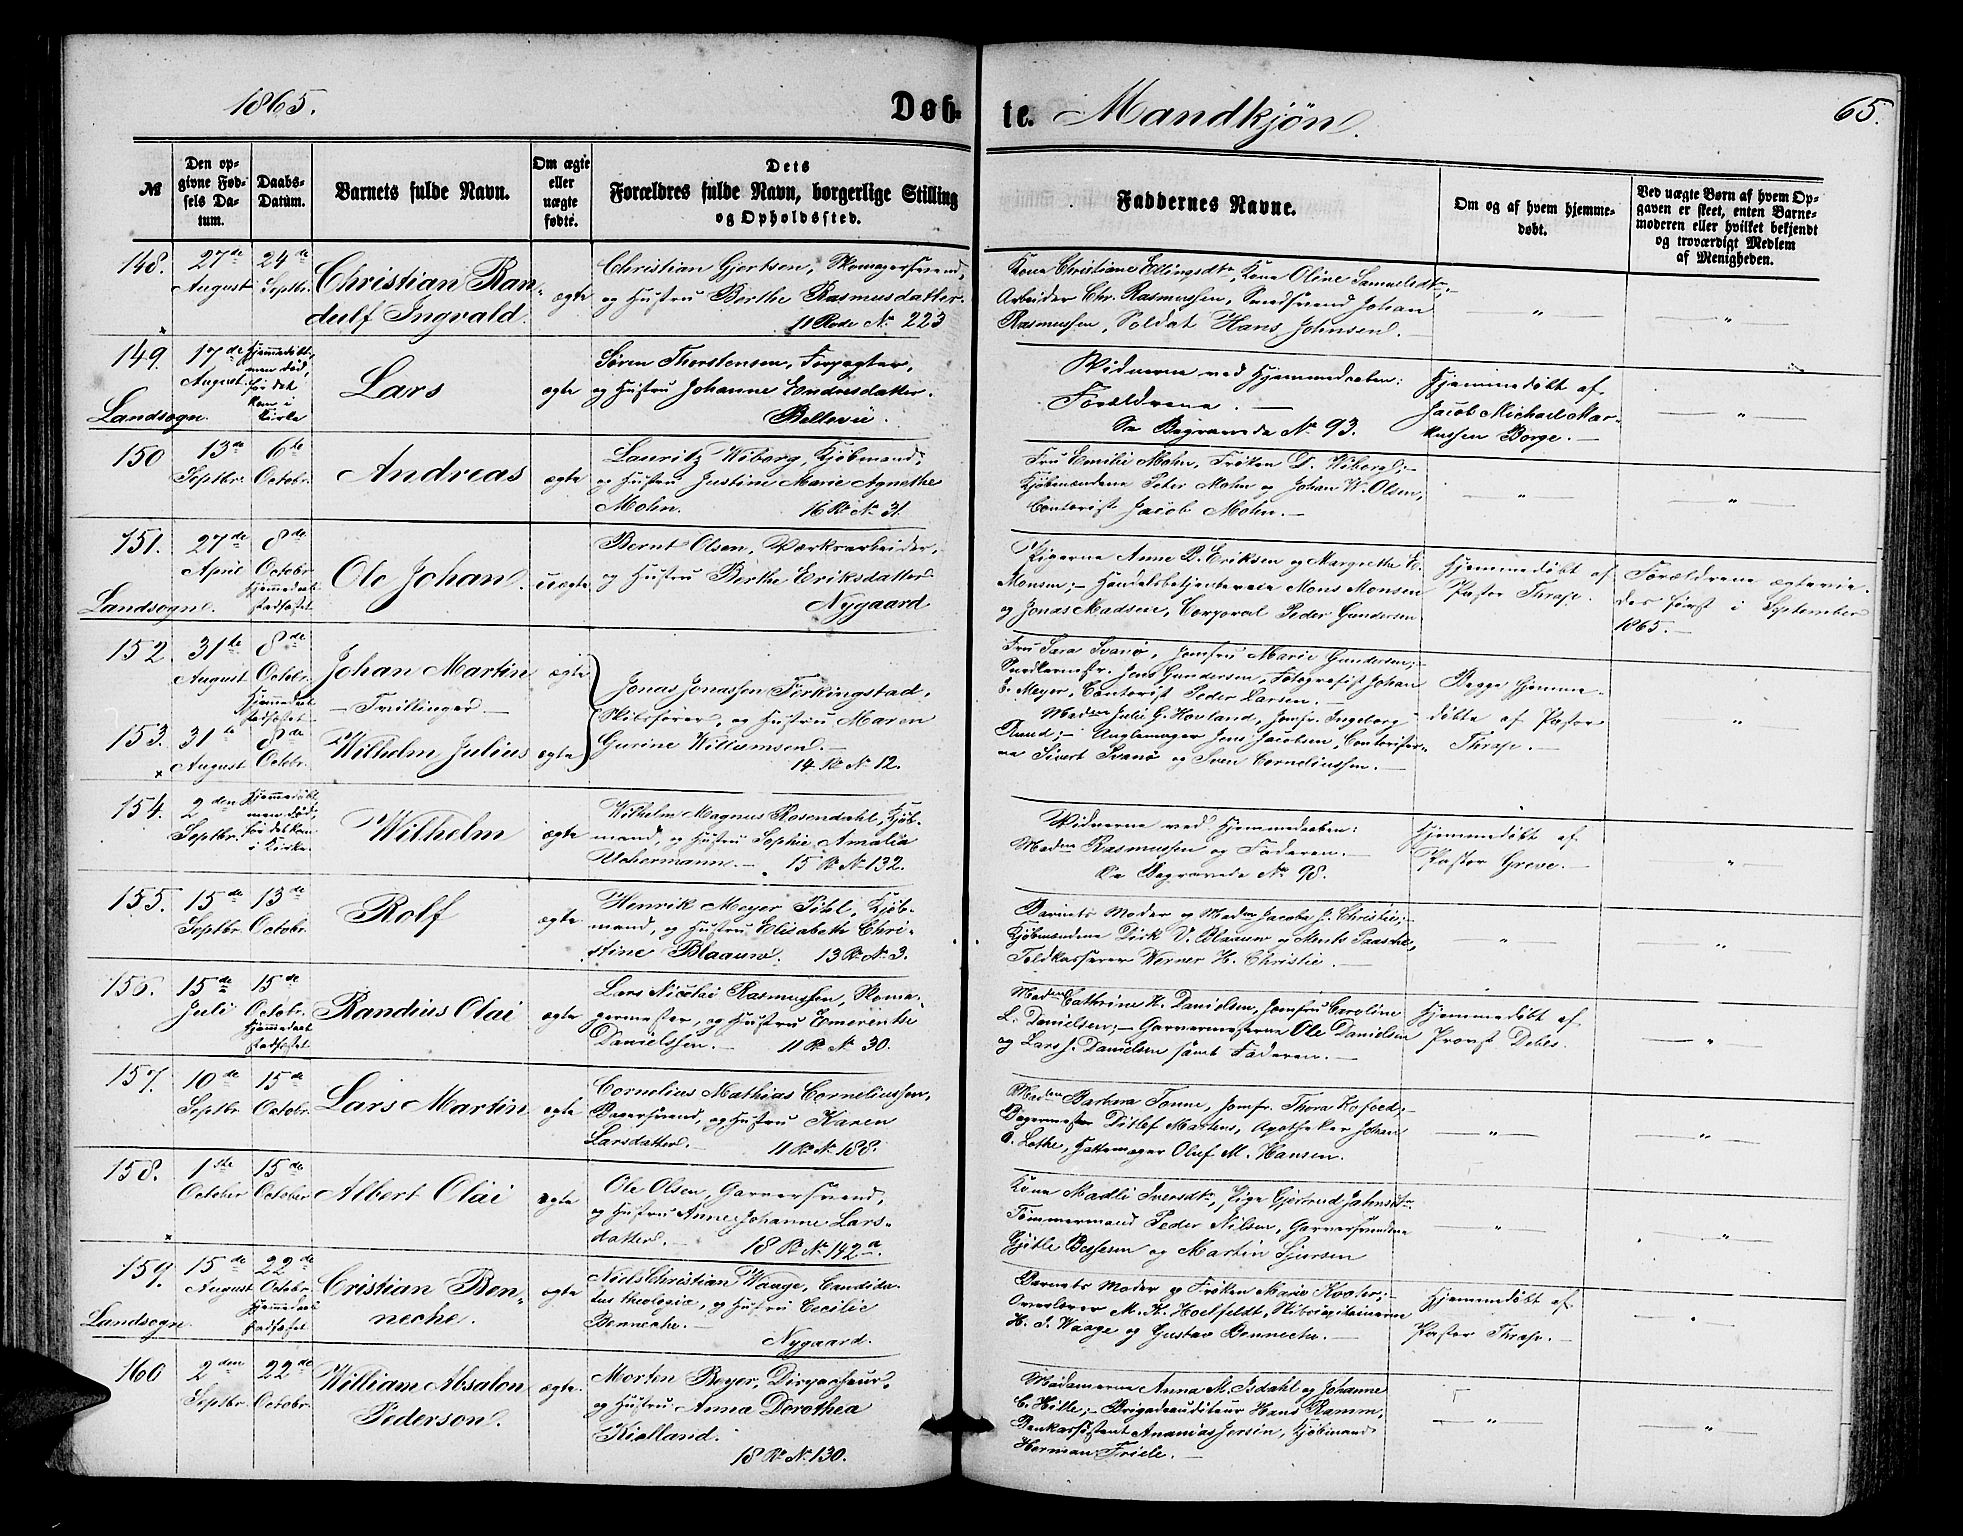 1865.
Døb-
te.
Mandkjøn.
65.
№
Den op-
givne Fød-
sels Da-
tum.
Daabs-
Datum.
Barnets fulde Navn.
Om ægte
eller
uægte
fødte.
Dets
Forældres fulde Navn, borgerlige Stilling
og Opholdssted.
Faddernes Navne.
Om og af hvem hjemme-
døbt.
Ved uægte Børn af hvem Op-
gaven er skeet, enten Barne-
moderen eller hvilket bekjendt
og troværdigt Medlem
af Menigheden.
148.
27de
August
24de
Septbr.
Christian Ran-
dulf Ingvald.
ægte
Christian Gjertsen, Skomagersvend,
og Hustru Berthe Rasmusdatter.
11 Rode No 223
Kone Christiane Ellingsdtr, Kone Oline Samuelsdtr,-
Arbeider Chr. Rasmussen, Smedsvend Johan
Rasmussen, Soldat Hans Johnsen.
"
"
149.
Landsogn.
17de
August
Hjemmedøbt,
men død,
før det
kom i
Kirke
Lars
ægte
Søren Thorstensen, Forpagter,
og Hustru Johanne Endresdatter.
Bellevue.
Vidnerne ved Hjemmedaaben:
Forældrene. —
Se Begravede No 93.
Hjemmedøbt af
Jacob Michael Mar-
kussen Borge. —
"
150
13de
Septbr.
6te
Octobr.
Andreas
ægte
Lauritz Wiborg, Kjøbmand,
og Hustru Justine Marie Agnethe
Mohn. 16 R No 31.
Fru Emilie Mohn, Frøken D. Wiborg;-
Kjøbmændene Peter Mohn og Johan W. Olsen,
Contorist Jacob Mohn. —
"
"
151.
Landsogn.
27de
April
8de
Octobr
Hjemmedaab
stadfæstet
Ole Johan.
uægte
Bernt Olsen, Værksarbeider,
og Hustru Berthe Eriksdatter
Nygaard
Pigerne Anne B. Eriksen og Margrethe E.
Monsen;- Handelsbetjenterne Mons Monsen
og Jonas Madsen, Corporal Peder Gundersen
Hjemmedøbt af
Pastor Thrap.
Forældrene ægtevie-
des først i September
1865. —
152.
31te
August
8de
Octobr.
Hjemmedaab
stadfæstet
Johan Martin
— Tvillinger —
ægte
153.
31te
August
8de
Octobr.
Wilhelm Julius
ægte
Jonas Jonassen Ferkingstad,
Skibsfører, og Hustru Maren
Gurine Wiliamsen. —
14 R No 12.
Fru Sara Svanø, Jomfru Marie Gundersen;-
Snedkermestr. Jens Gundersen, Fotografist Johan
E. Meyer, Contorist Peder Larsen. —
Madm Julie G. Hovland, Jomfr. Ingeborg
Rund;- Uhrmager Jens Jacobsen, Contorister-
ne Sivert Svanø og Sven Corneliussen. —
Begge hjemme-
døbte af Pastor
Thrap. —
"
154.
2den
Septbr.
Hjemmedøbt,
men død,
før det kom
i Kirke.
Wilhelm
ægte
Wilhelm Magnus Rosendahl, Kjøb-
mand, og Hustru Sophie Amalia
Uchermann. — 15 R No 132.
Vidnerne ved Hjemmedaaben:
Madm Rasmussen og Faderen. —
Se Begravede No 98.
Hjemmedøbt af
Pastor Greve. —
"
155.
15de
Septbr.
13de
Octobr.
Rolf
ægte
Henrik Meyer Pihl, Kjøb-
mand, og Hustru Elisabeth Chri-
stine Blaauw. 13 R No 3.
Barnets Moder og Madm Jacobe J. Christie;-
Kjøbmændene Dirk V. Blaauw og Ments Paasche,
Toldkasserer Werner H. Christie. —
"
"
156.
15de
Juli
15de
Octobr.
Hjemmedaab
stadfæstet
Randius Olai
ægte
Lars Nicolai Rasmussen, Skoma-
germester, og Hustru Emerentse
Danielssen. — 11 R No 30.
Madm Cathrine H. Danielsen, Jomfru Caroline
L. Danielsen;- Garvermesterne Ole Danielsen
og Lars J. Danielsen samt Faderen. —
Hjemmedøbt af
Provst Debes.
"
157.
10de
Septbr
15de
Octobr.
Lars Martin
ægte
Cornelius Mathias Corneliussen,
Bagersvend, og Hustru Karen
Larsdatter. — 11 R No 188.
Madm Barbara Tonne, Jomfr. Thora Kofoed;-
Bagermester Ditlef Martens, Apotheker Johan
A. Lothe, Hattemager Oluf M. Hansen.
"
"
158.
1ste
October
15de
October
Albert Olai
ægte
Ole Olsen, Garversvend,
og Hustru Anne Johanne Lars-
datter. — 18 R No 142 a.
Kone Madli Iversdtr, Pige Gjertrud Johnsdtr
Tømmermand Peder Nilsen, Garversvendene
Gjitle Bessesen og Martin Sjursen
"
"
159.
Landsogn.
15de
August
22de
Octobr.
Hjemmedaab
stadfæstet
Cristian Ben-
neche.
ægte
Niels Christian Waage, Candida-
tus theologiæ, og Hustru Cecilie
Benneche. —
Nygaard.
Barnets Moder og Frøken Marie Kooter;-
Overlærer M. H. Hoelfeldt, Skibscapitainerne
H. J. Waage og Gustav Benneche. —
Hjemmedøbt af
Pastor Thrap. —
"
160
2den
Septbr.
22de
Octobr.
William Absalon
Pederson.
ægte
Morten Beyer, Dispacheur,
og Hustru Anna Dorothea
Kielland.
18 R No 130.
Madamerne Anna M. Isdahl og Johanne
C. Hille;- Brigadeauditeur Hans Ramm,
Bankassistent Ananias Jersin, Kjøbmand
Herman Friele. —
"
"